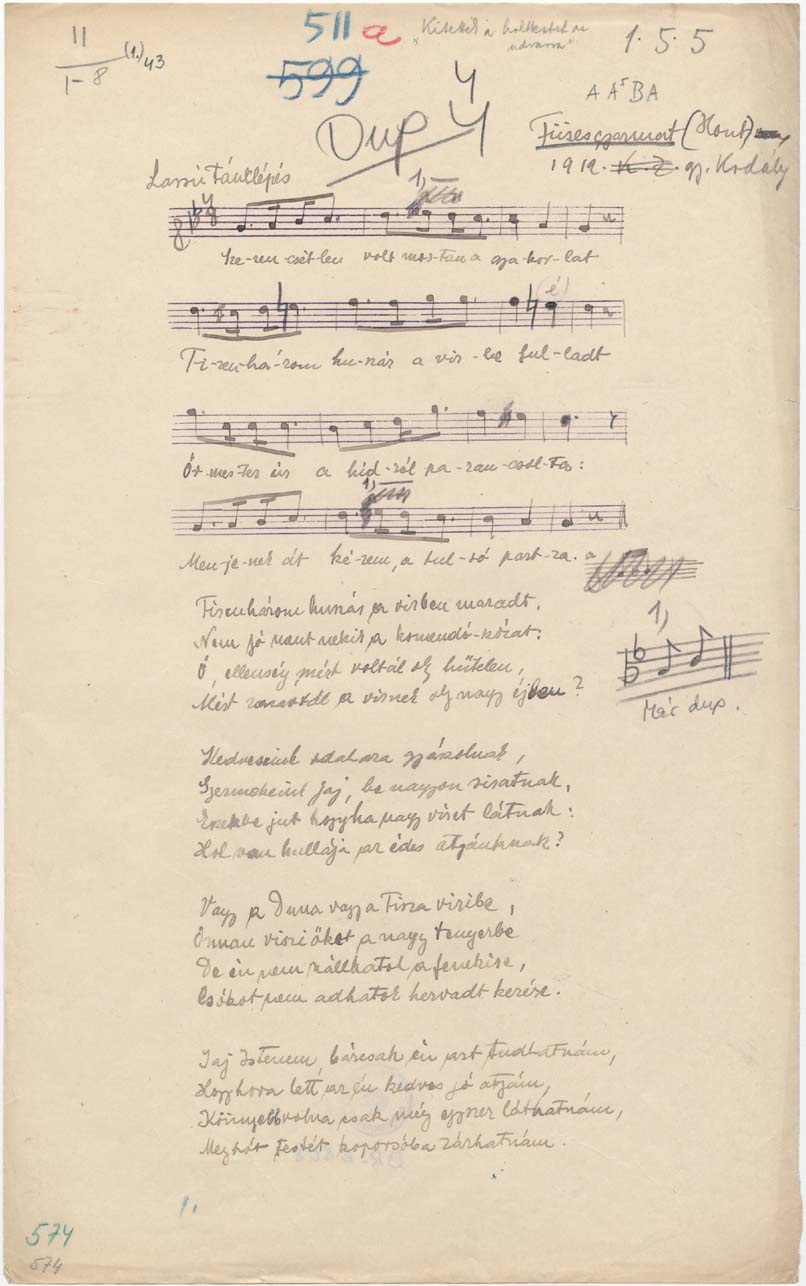 11
1-8 (1.) 43
511 a
599
"Kitették a holttestet az
udvarra"
1. 5. 5
4
Dup 4
A A⁵ B A
Füsesgyarmat (Hont)
1912. K. Z. gy. Kodály
Lassú Tánclépés
1,
Sze-ren-csét-len volt mos-tan a gya-kor-lat
(é)
Ti-zen-há-rom hu-szár a víz-be ful-ladt
Őr-mes-ter úr a híd-ról pa-ran-csol-ta:
1,
Men-je-nek át ké-rem, a tul-só part-ra. a
Tizenhárom huszár a vízben maradt,
Nem jó vænt nekik a komendó-szózat:
Ó, ellenség mért voltál oly hűtelen,
Mért zavartál a víznek oly nagy éjben?
1,
Már dup.
Kedveseink odahaza gyászolnak,
Gyermekeink jaj, be nagyon sisatnak,
Eszekbe jut hogyha nagy vizet látnak:
Hol van hullája az édes atyánknak?
Vagy a Duna vagy a Tisza vizibe,
Onnan viszi őket a nagy tengerbe
De én nem szállhatok a fenekire,
Csókot nem adhatok hervadt kezére.
Jaj Istenem, bárcsak én azt tudhatnám,
Hogy hova lett az én kedves jó atyám,
Könnyebb volna csak még egyszer láthatnám,
Meghólt testét koporsóba zárhatnám.
1.
574
574